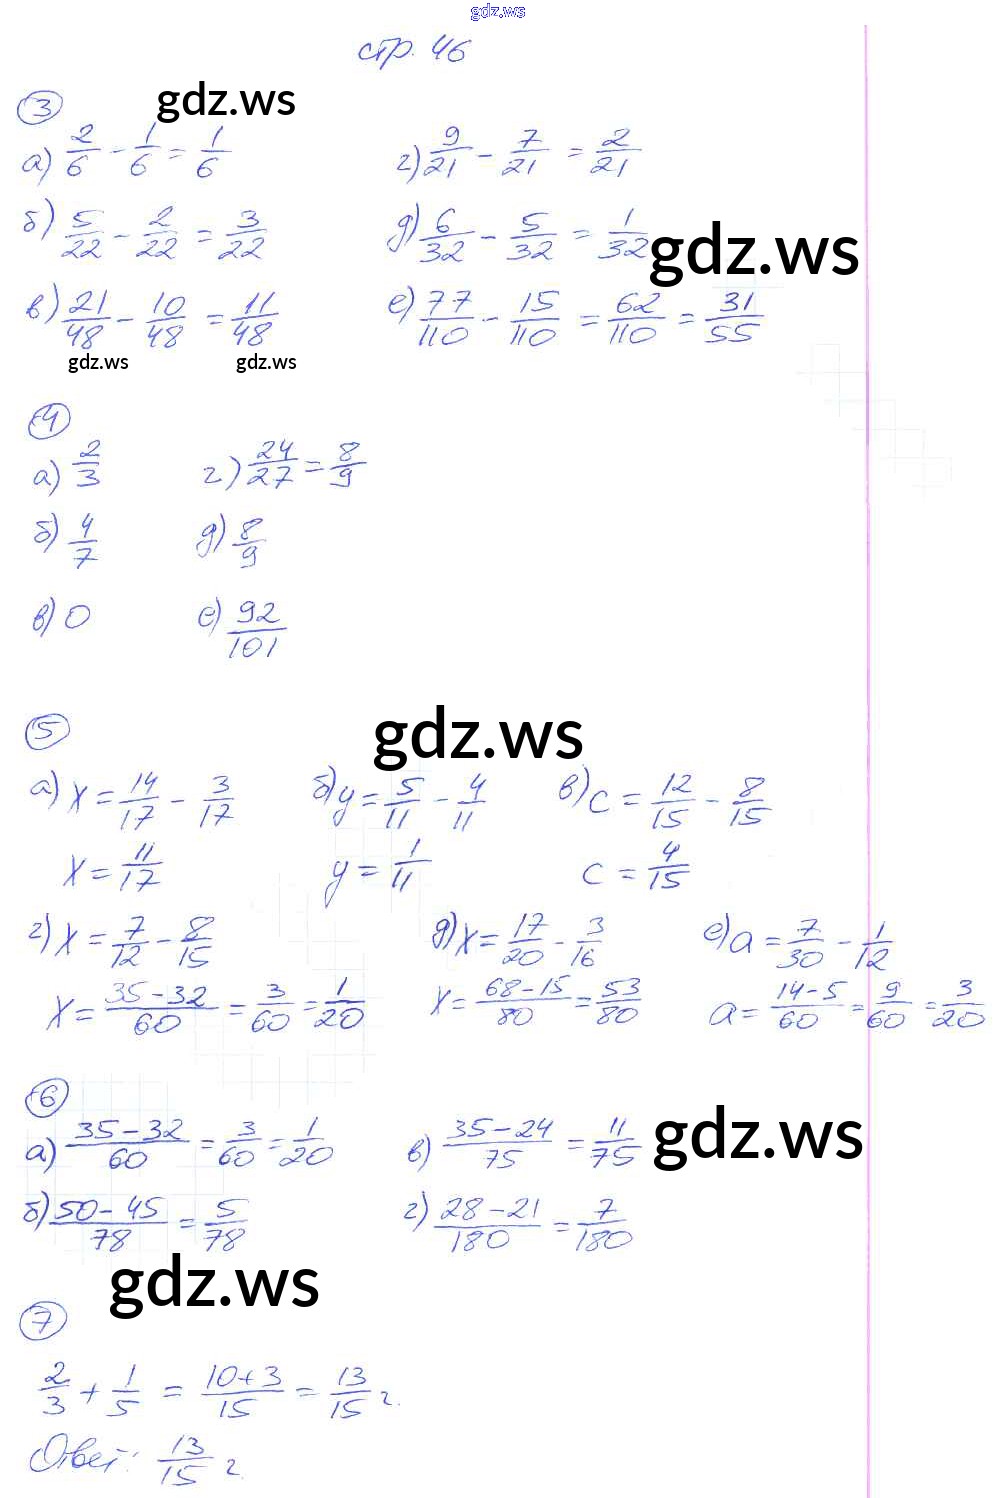 gdz.ws
стр. 46
gdz.ws
3
а) 2/6 - 1/6 = 1/6 г) 9/21 - 7/21 = 2/21
б) 5/22 - 2/22 = 3/22 д) 6/32 - 5/32 = 1/32
gdz.ws
в) 21/48 - 10/48 = 11/48 е) 77/110 - 15/110 = 62/110 = 31/55
gdz.ws gdz.ws
4
а) 2/3 г) 24/27 = 8/9
б) 4/7 д) 8/9
в) 0 е) 92/101
5
gdz.ws
а) x = 14/17 - 3/17 б) y = 5/11 - 4/11 в) c = 12/15 - 8/15
x = 11/17 y = 1/11 c = 4/15
г) x = 7/12 - 8/15 д) x = 17/20 - 3/16 е) a = 7/30 - 1/12
x = 35-32/60 = 3/60 = 1/20 x = 68-15/80 = 53/80 a = 14-5/60 = 9/60 = 3/20
6
а) 35-32/60 = 3/60 = 1/20 в) 35-24/75 = 11/75
gdz.ws
б) 50-45/78 = 5/78 г) 28-21/180 = 7/180
gdz.ws
7
2/3 + 1/5 = 10+3/15 = 13/15 г.
Ответ: 13/15 г.